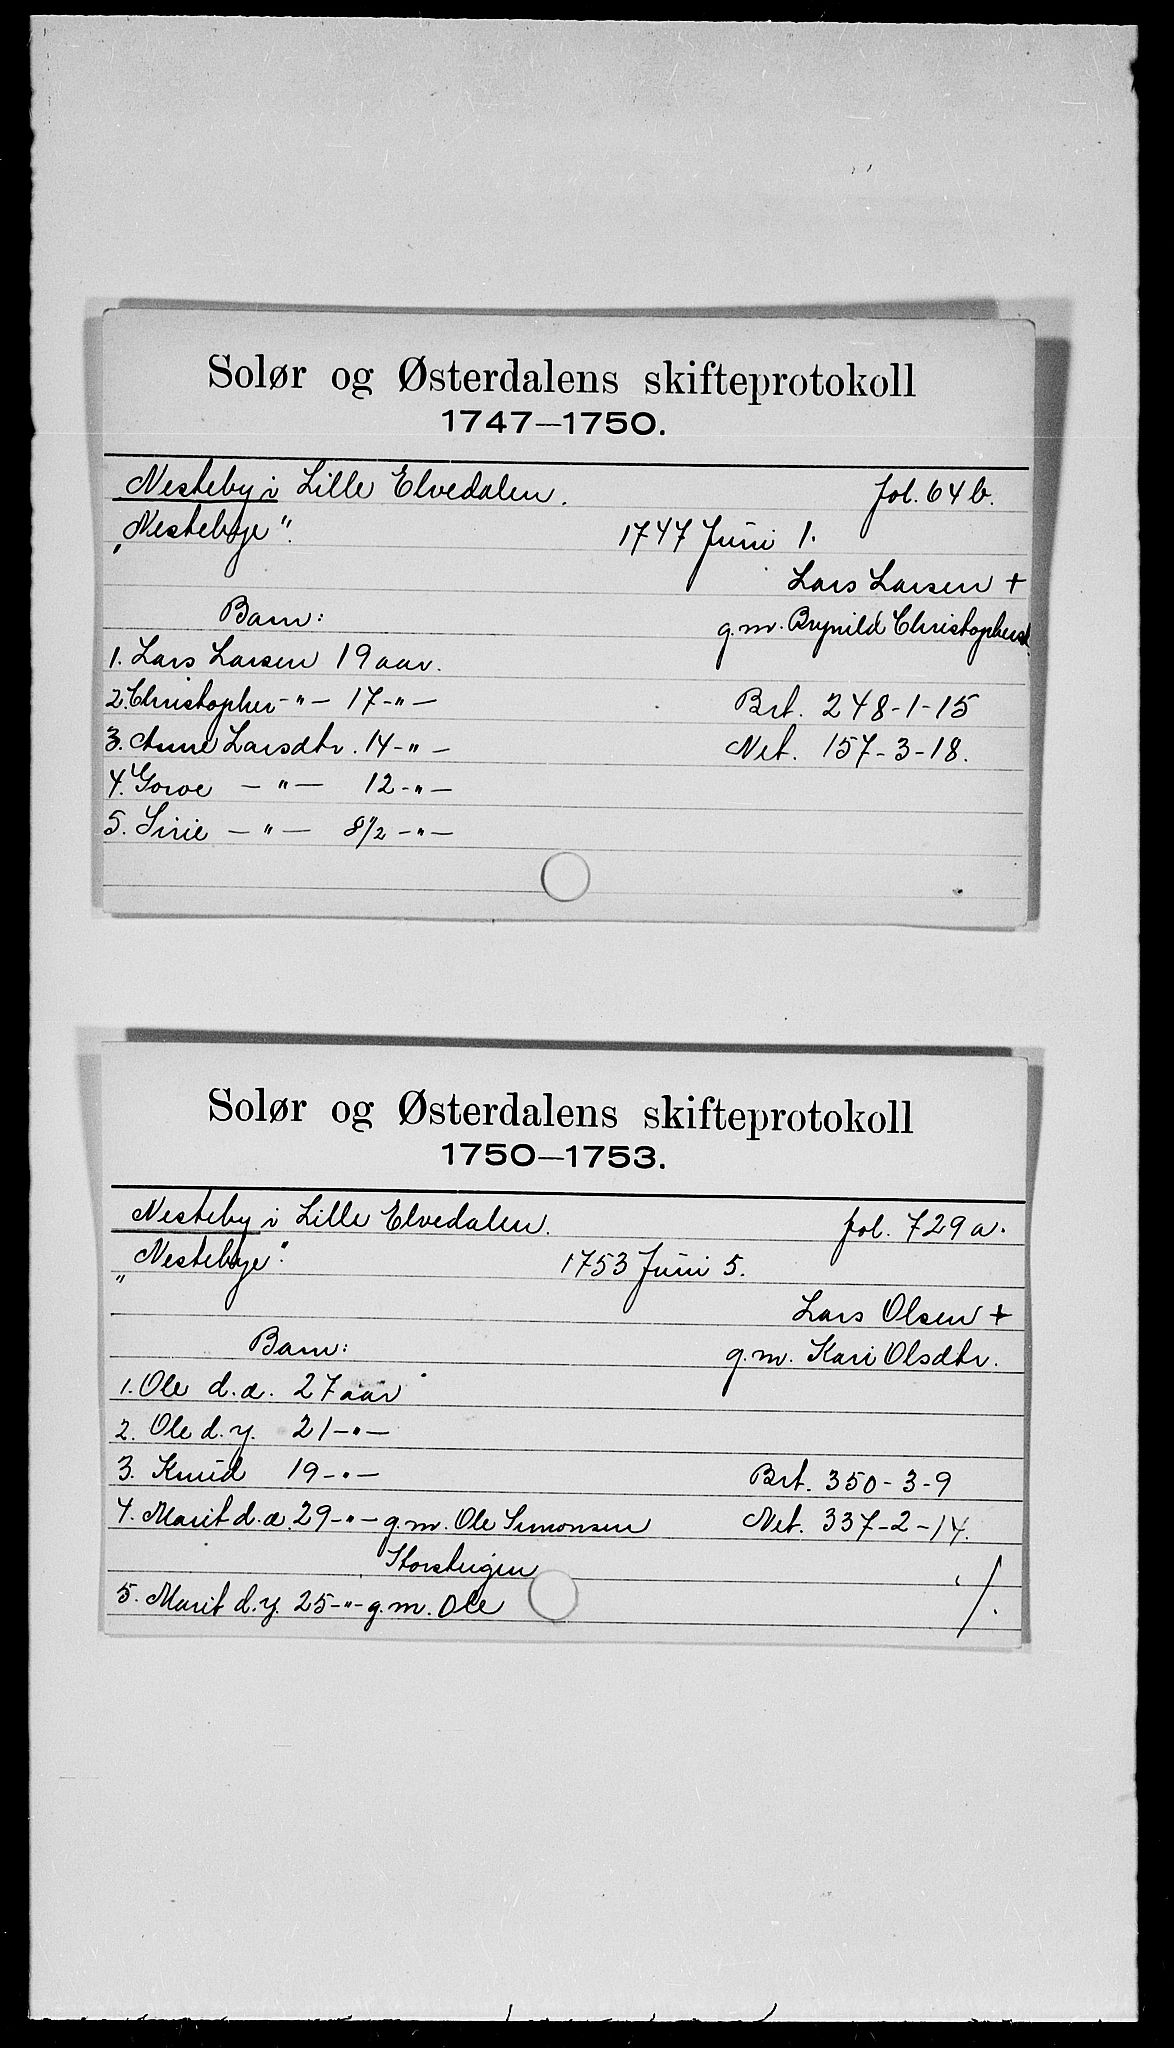 Solør og Østerdalens skifteprotokoll
1747—1750.
Nesteby i Lille Elvedalen. fol. 64 b.
„Nestebye". 1747 Juni 1.
Lars Larsen +
Barn: g.m. Brynild Christophersd.
1. Lars Larsen 19 aar.
2. Christopher -"- 17-"- Brt. 248-1-15
3. Anne Larsdtr. 14-"- Net. 157-3-18.
4. Goroe -"- 12-"-
5. Sirie -"- 8 1/2-"-
Solør og Østerdalens skifteprotokoll
1750—1753.
Nesteby i Lille Elvedalen. fol. 729 a.
„Nestebye". 1753 Juni 5.
Lars Olsen +
Barn: g.m. Kari Olsdtr.
1. Ole d.æ. 27 aar
2. Ole d.y. 21-"-
3. Knud 19-"- Brt. 350-3-9
4. Marit d.æ. 29-"- g.m. Ole Simonsen Net. 337-2-14.
Storsteigen
5. Marit d.y. 25-"- g.m. Ole ./.